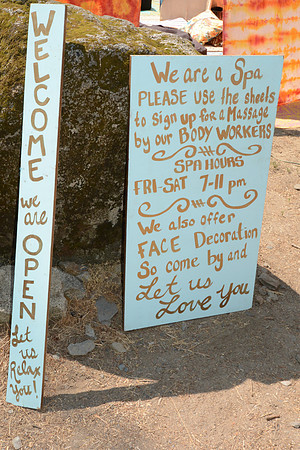 WELCOME
we
are
OPEN
Let
us
Relax
You!
We are a Spa
PLEASE USE the sheets
to sign up for a Massage
by our BODY WORKERS
#
SPA HOURS
FRI-SAT 7-11 pm
#
We also offer
FACE Decoration
So come by and
Let us
Love You